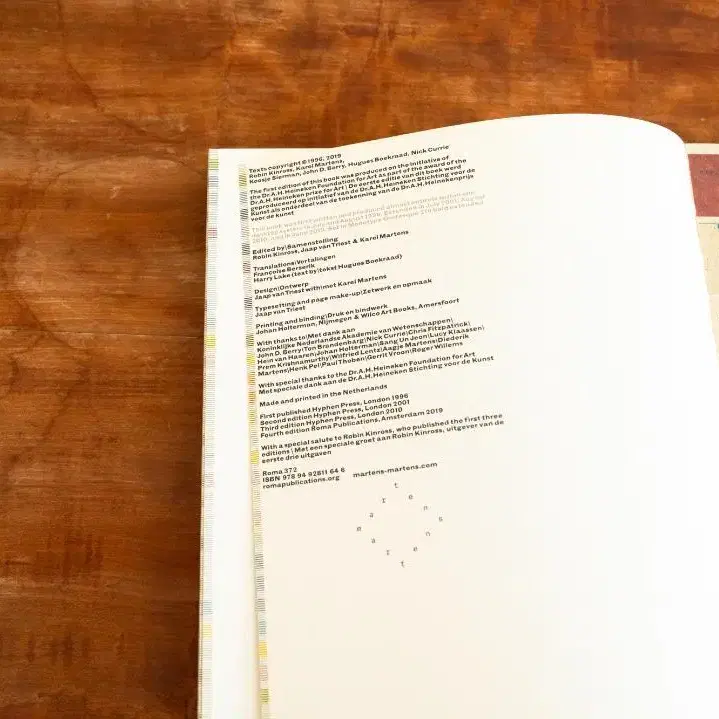 Texts copyright ©1996, 2019
Robin Kinross, Karel Martens,
Koosje Sierman, John D. Berry, Hugues Boekraad, Nick Currie
The first edition of this book was produced on the initiative of
the Dr.A.H. Heineken Foundation for Art as part of the award of the
Dr.A.H. Heineken prize for Art | De eerste editie van dit boek werd
geproduceerd op initiatief van de Dr.A.H. Heineken Stichting voor de
Kunst als onderdeel van de toekenning van de Dr.A.H. Heinekenprijs
voor de kunst
This book was first written and produced
Edited by\Samenstelling
Robin Kinross, Jaap van Triest & Karel Martens
Translations\Vertalingen
Françoise Berserik
Harry Lake (text by\tekst Hugues Boekraad)
Design\Ontwerp
Jaap van Triest with\met Karel Martens
Typesetting and page make-up\Zetwerk en opmaak
Jaap van Triest
Printing and binding\Druk en bindwerk
Johan Holterman, Nijmegen & Wilco Art Books, Amersfoort
With thanks to\Met dank aan
Koninklijke Nederlandse Akademie van Wetenschappen\
John D. Berry\Ton Brandenbarg\Nick Currie\Chris Fitzpatrick\
Hein van Haaren\Johan Holterman\Sang Un Jeon\Lucy Klaassen\
Prem Krishnamurthy\Wilfried Lentz\Aagje Martens\Diederik
Martens\Henk Pel\Paul\Gerrit Vroon\Roger Willems
With special thanks to the Dr.A.H. Heineken Foundation for Art
Met speciale dank aan de Dr.A.H. Heineken Stichting voor de Kunst
Made and printed in the Netherlands
First published Hyphen Press, London 1996
Second edition Hyphen Press, London 2001
Third edition Hyphen Press, London 2010
Fourth edition Roma Publications, Amsterdam 2019
With a special salute to Robin Kinross, who published the first three
editions \ Met een speciale groet aan Robin Kinross, uitgever van de
eerste drie uitgaven
Roma 372
ISBN 978 94 92811 64 6
romapublications.org martens-martens.com
martens
martens